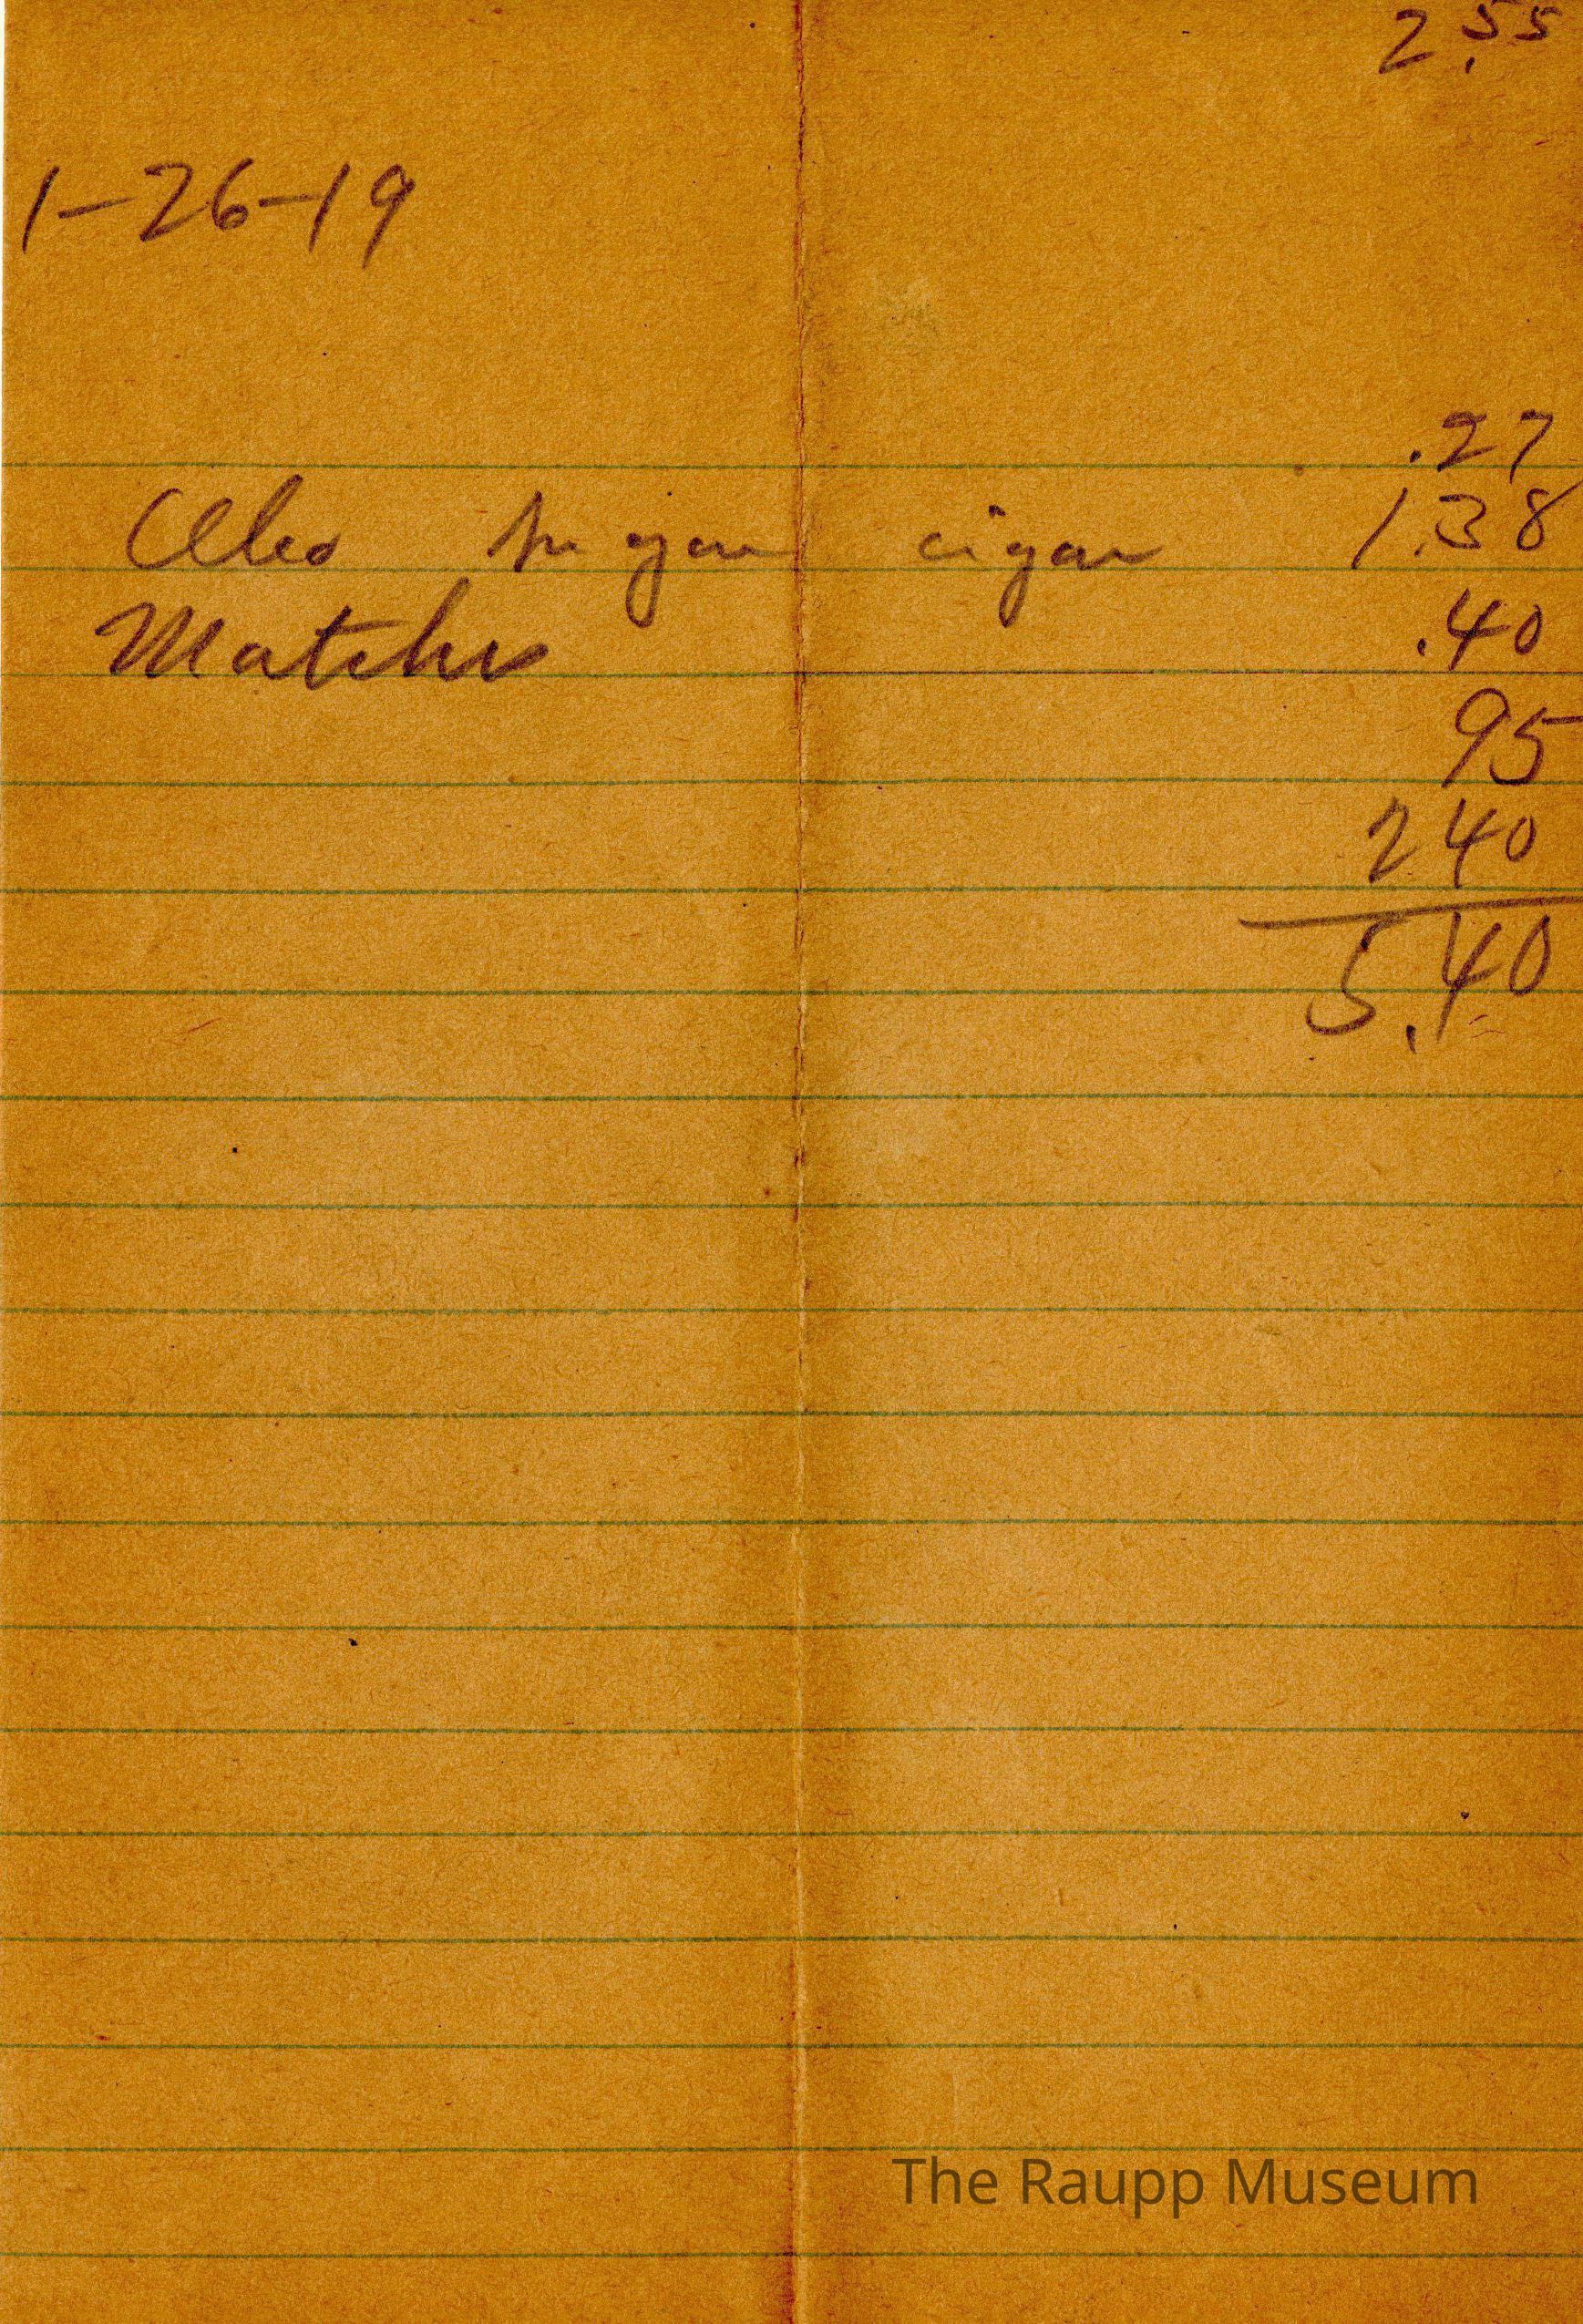 2.55
1-26-19
.27
cigar 1.38
Matches .40
95
2 40
5.40
The Raupp Museum